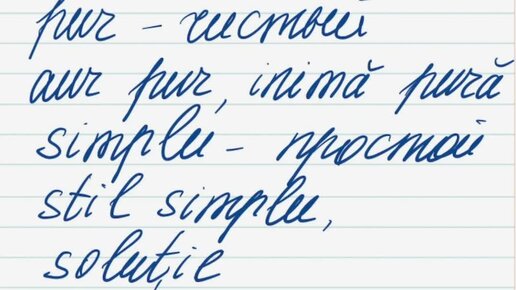 pur – чистый
aur pur, inimă pură
simplu – простой
stil simplu,
soluție